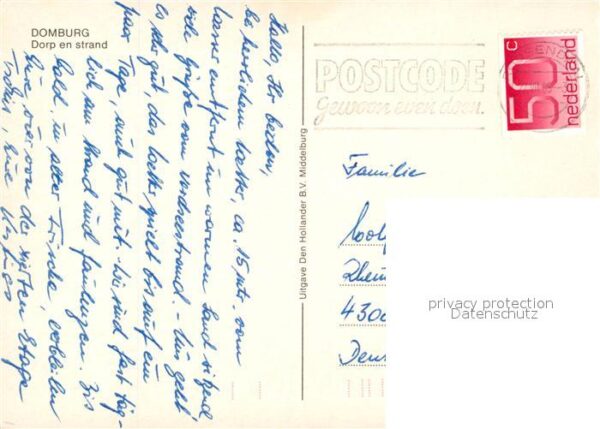 DOMBURG
Dorp en strand
Hallo, Ihr beiden,
bei herrlichem Wetter, ca. 15 mtr. vom
Wasser entfernt im warmen Sand sitzend,
viele Grüße vom Nordseestrand. - Uns geht
es sehr gut, das Wetter spielt bis auf ein
paar Tage, auch gut mit. Wir sind fast täg-
lich am Strand und faulenzen. Bis
bald, in alter Frische, verbleiben
Eure vier von der vierten Etage
Uitgave Den Hollander B.V. Middelburg
POSTCODE
Gewoon even doen.
50 c
nederland
Familie
4300
privacy protection
Datenschutz